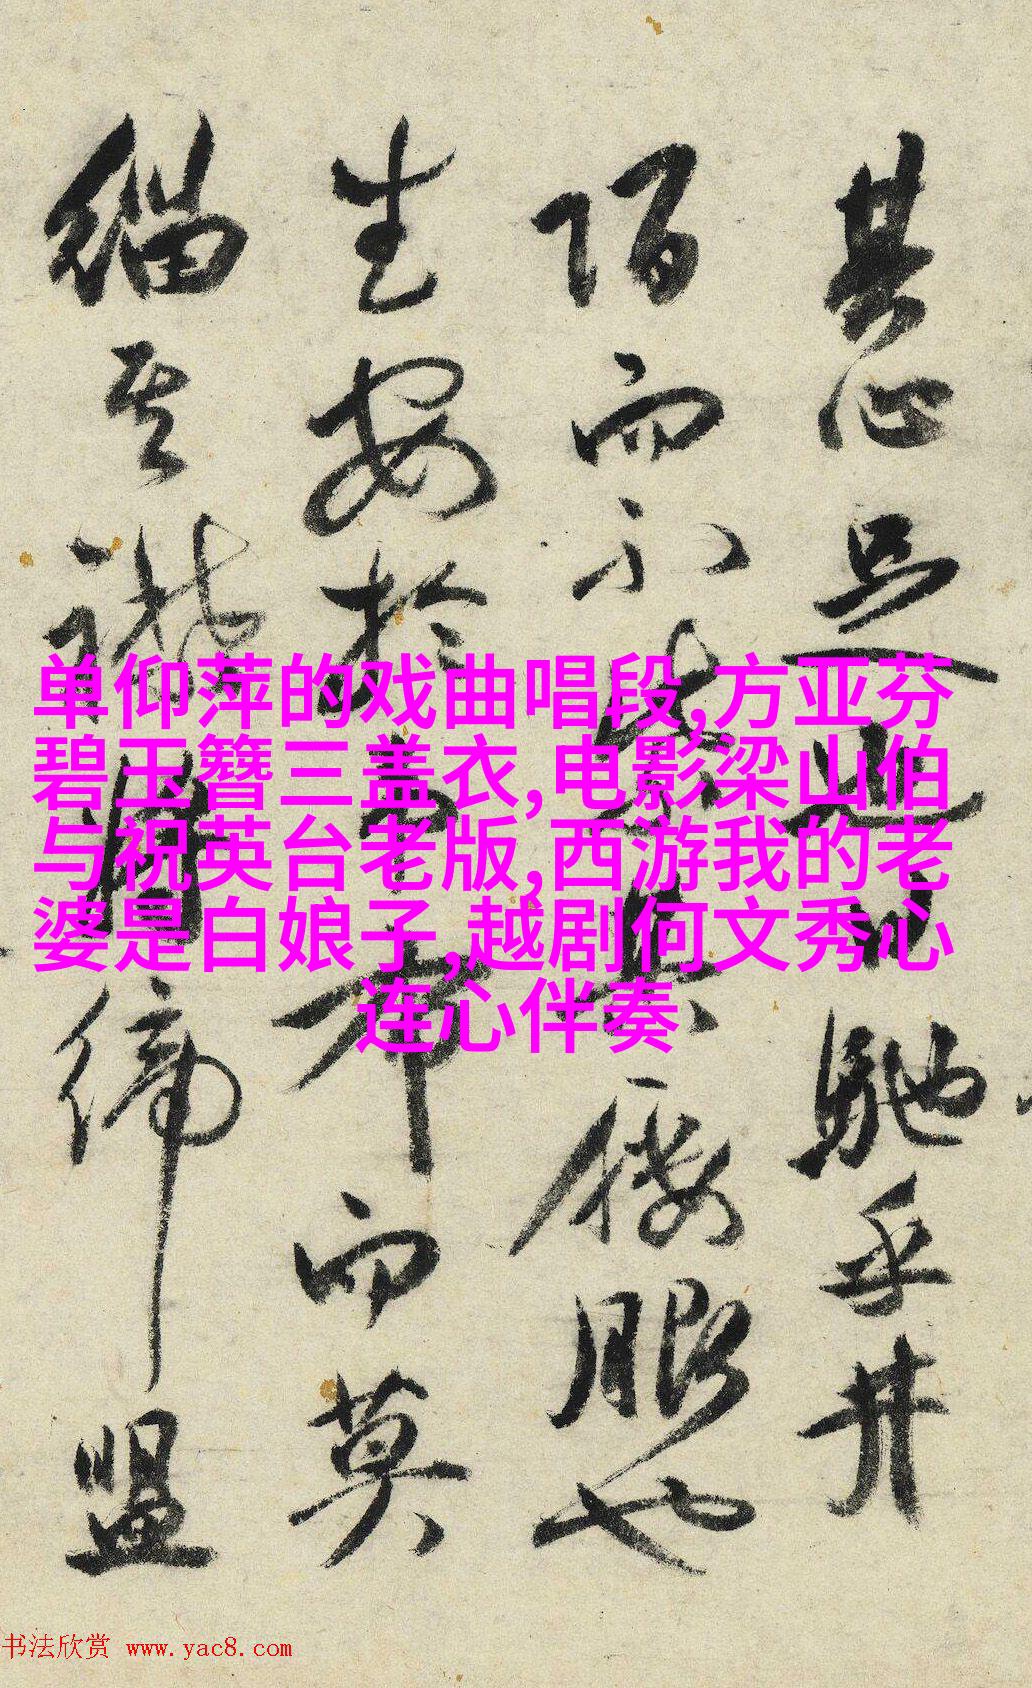 其心 馳乎井
陌而不失其優暇也
生安於 市而莫
緇其 締盟
单仰萍的戏曲唱段,方亚芬
碧玉簪三盖衣,电影梁山伯
与祝英台老版,西游我的老
婆是白娘子,越剧何文秀心
连心伴奏
书法欣赏 www.yac8.com